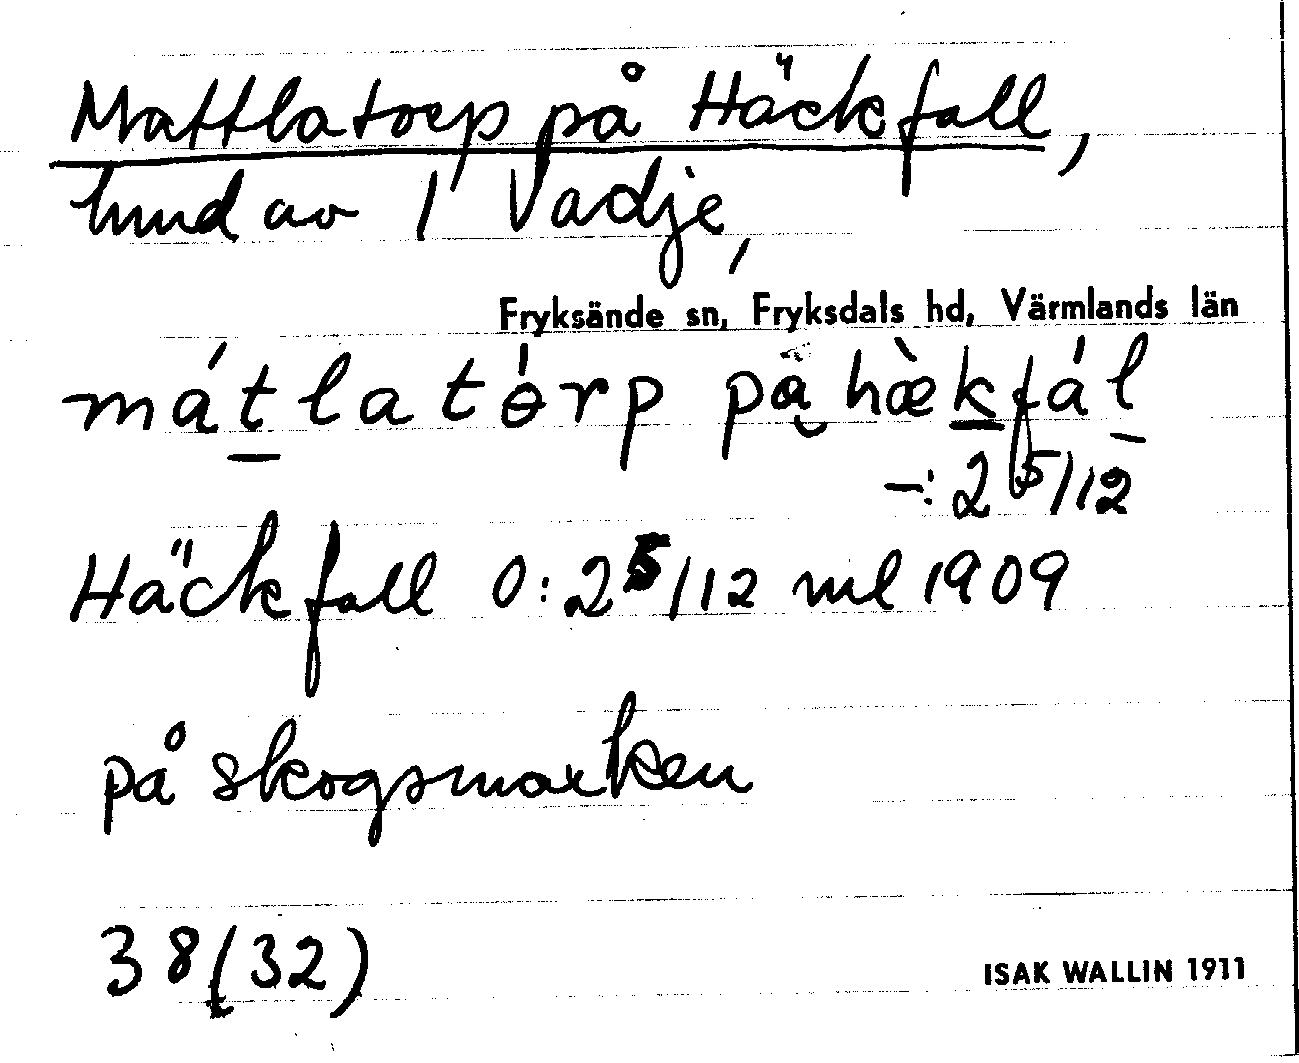 Mattlatorp på Häckfall,
hmd av 1 Vadje,
Fryksände sn, Fryksdals hd, Värmlands län
mátlatórp på hækfál
–:2 5/12
Häckfall 0:2 5/12 ml 1909
på skogsmarken
38(32)
ISAK WALLIN 1911